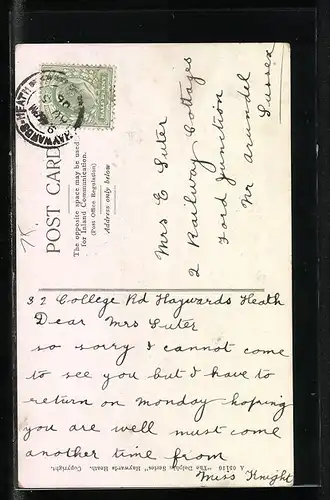 POST CARD
The opposite space may be used
for Inland Communication.
(Post Office Regulation)
Address only below
HAYWARDS-HEATH
Mrs E Suter
2 Railway Cottages
Ford Junction
Nr Arundel
Sussex
32 College Rd Haywards Heath
Dear Mrs Suter
so sorry I cannot come
to see you but I have to
return on Monday hoping
you are well must come
another time from
Miss Knight
"The Dolphin Series" Haywards Heath. Copyright.